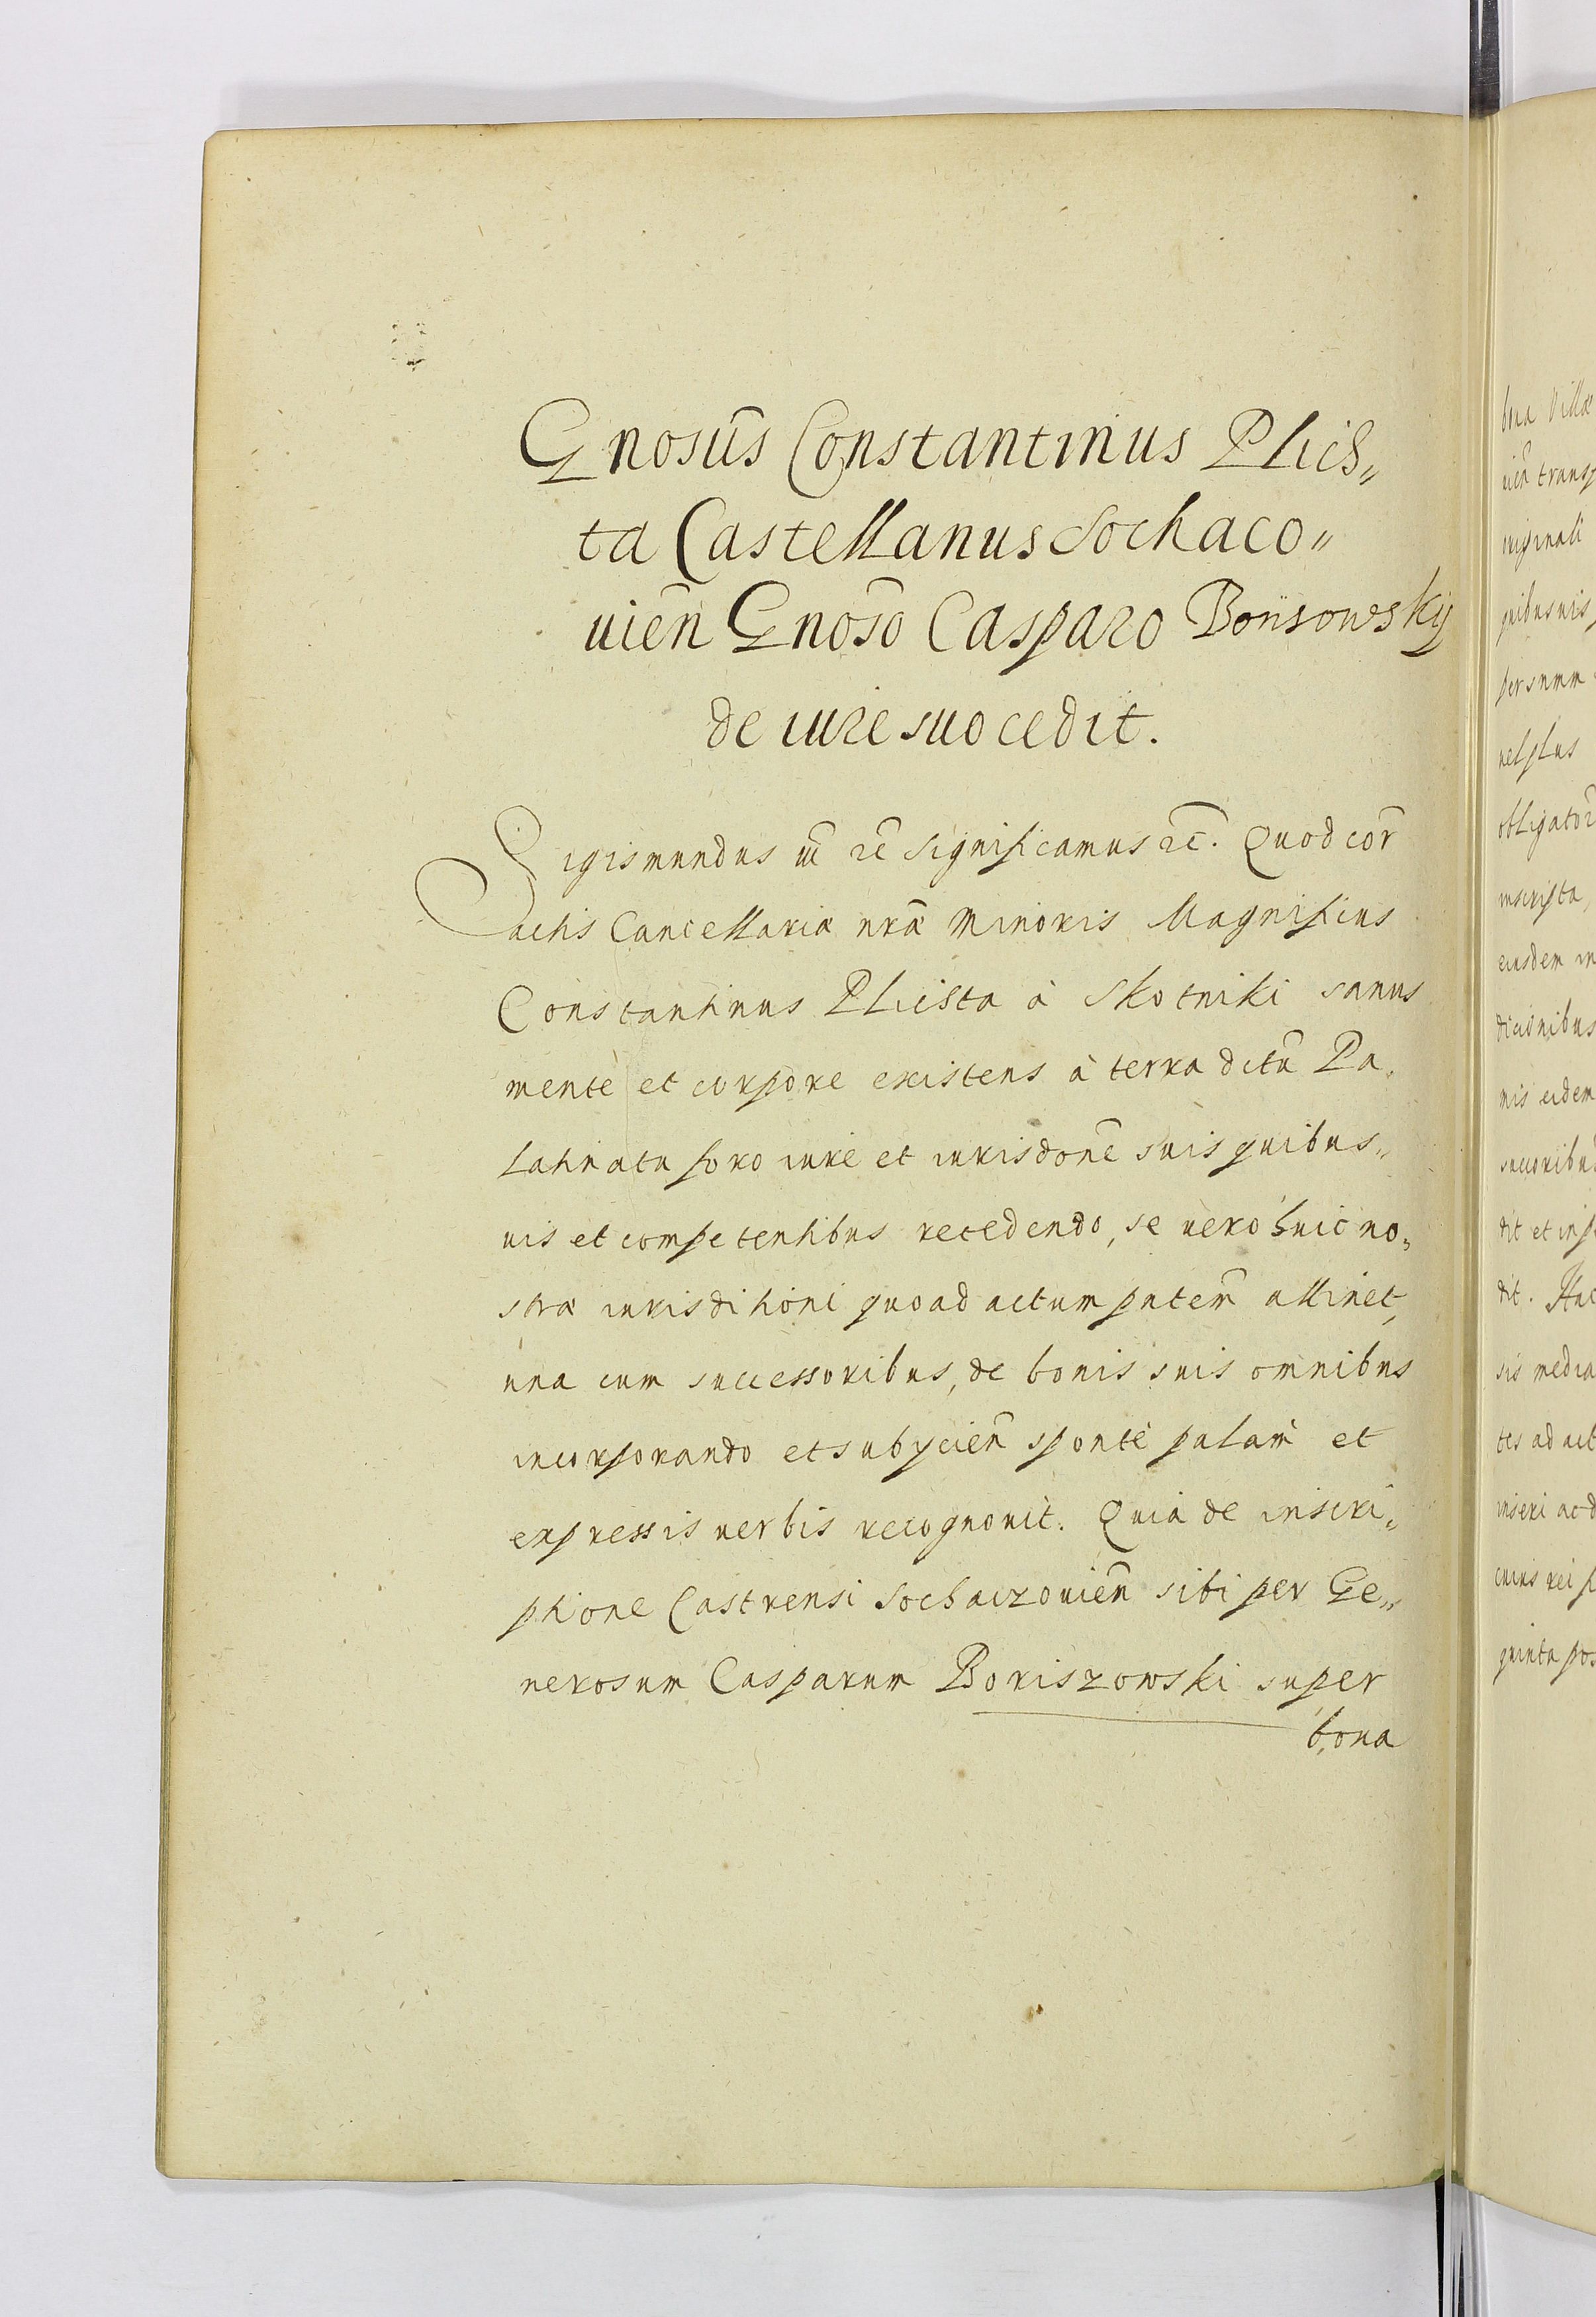 Gnosus Constantinus Plich„
ta Castellanus Sochaco„
uien Gnoso Casparo Borisowskij
de iure suo cedit.
Sigismundus III etc Significamus etc. Quod cor
actis Cancellariæ nræ Minoris Magnificus
Constantinus Plichta à Skotniki sanus
mente et corpore existens à terra dctu Pa„
latinatu foro iure et iurisdone suis quibus„
uis et competentibus recedendo, se uero huic no„
stræ iurisditioni quoad actum pntem attinet,
una cum successoribus, de bonis suis omnibus
incorporando et subycien sponte palam et
expressis uerbis recognouit. Quia de inscri„
ptione Castrensi Sochaczouien sibi per Ge„
nerosum Casparum Boriszowski super
bona
bna Villæ
uen transp
riginali
quibusuis
persumm
uel plus
obligator
inscripta,
eiusdem in
dicionibus
nis eidem
succoribus
dit et inp
dit. Hac
sis media
tes ad act
inseri ac d
cuius rei f
quinta pos